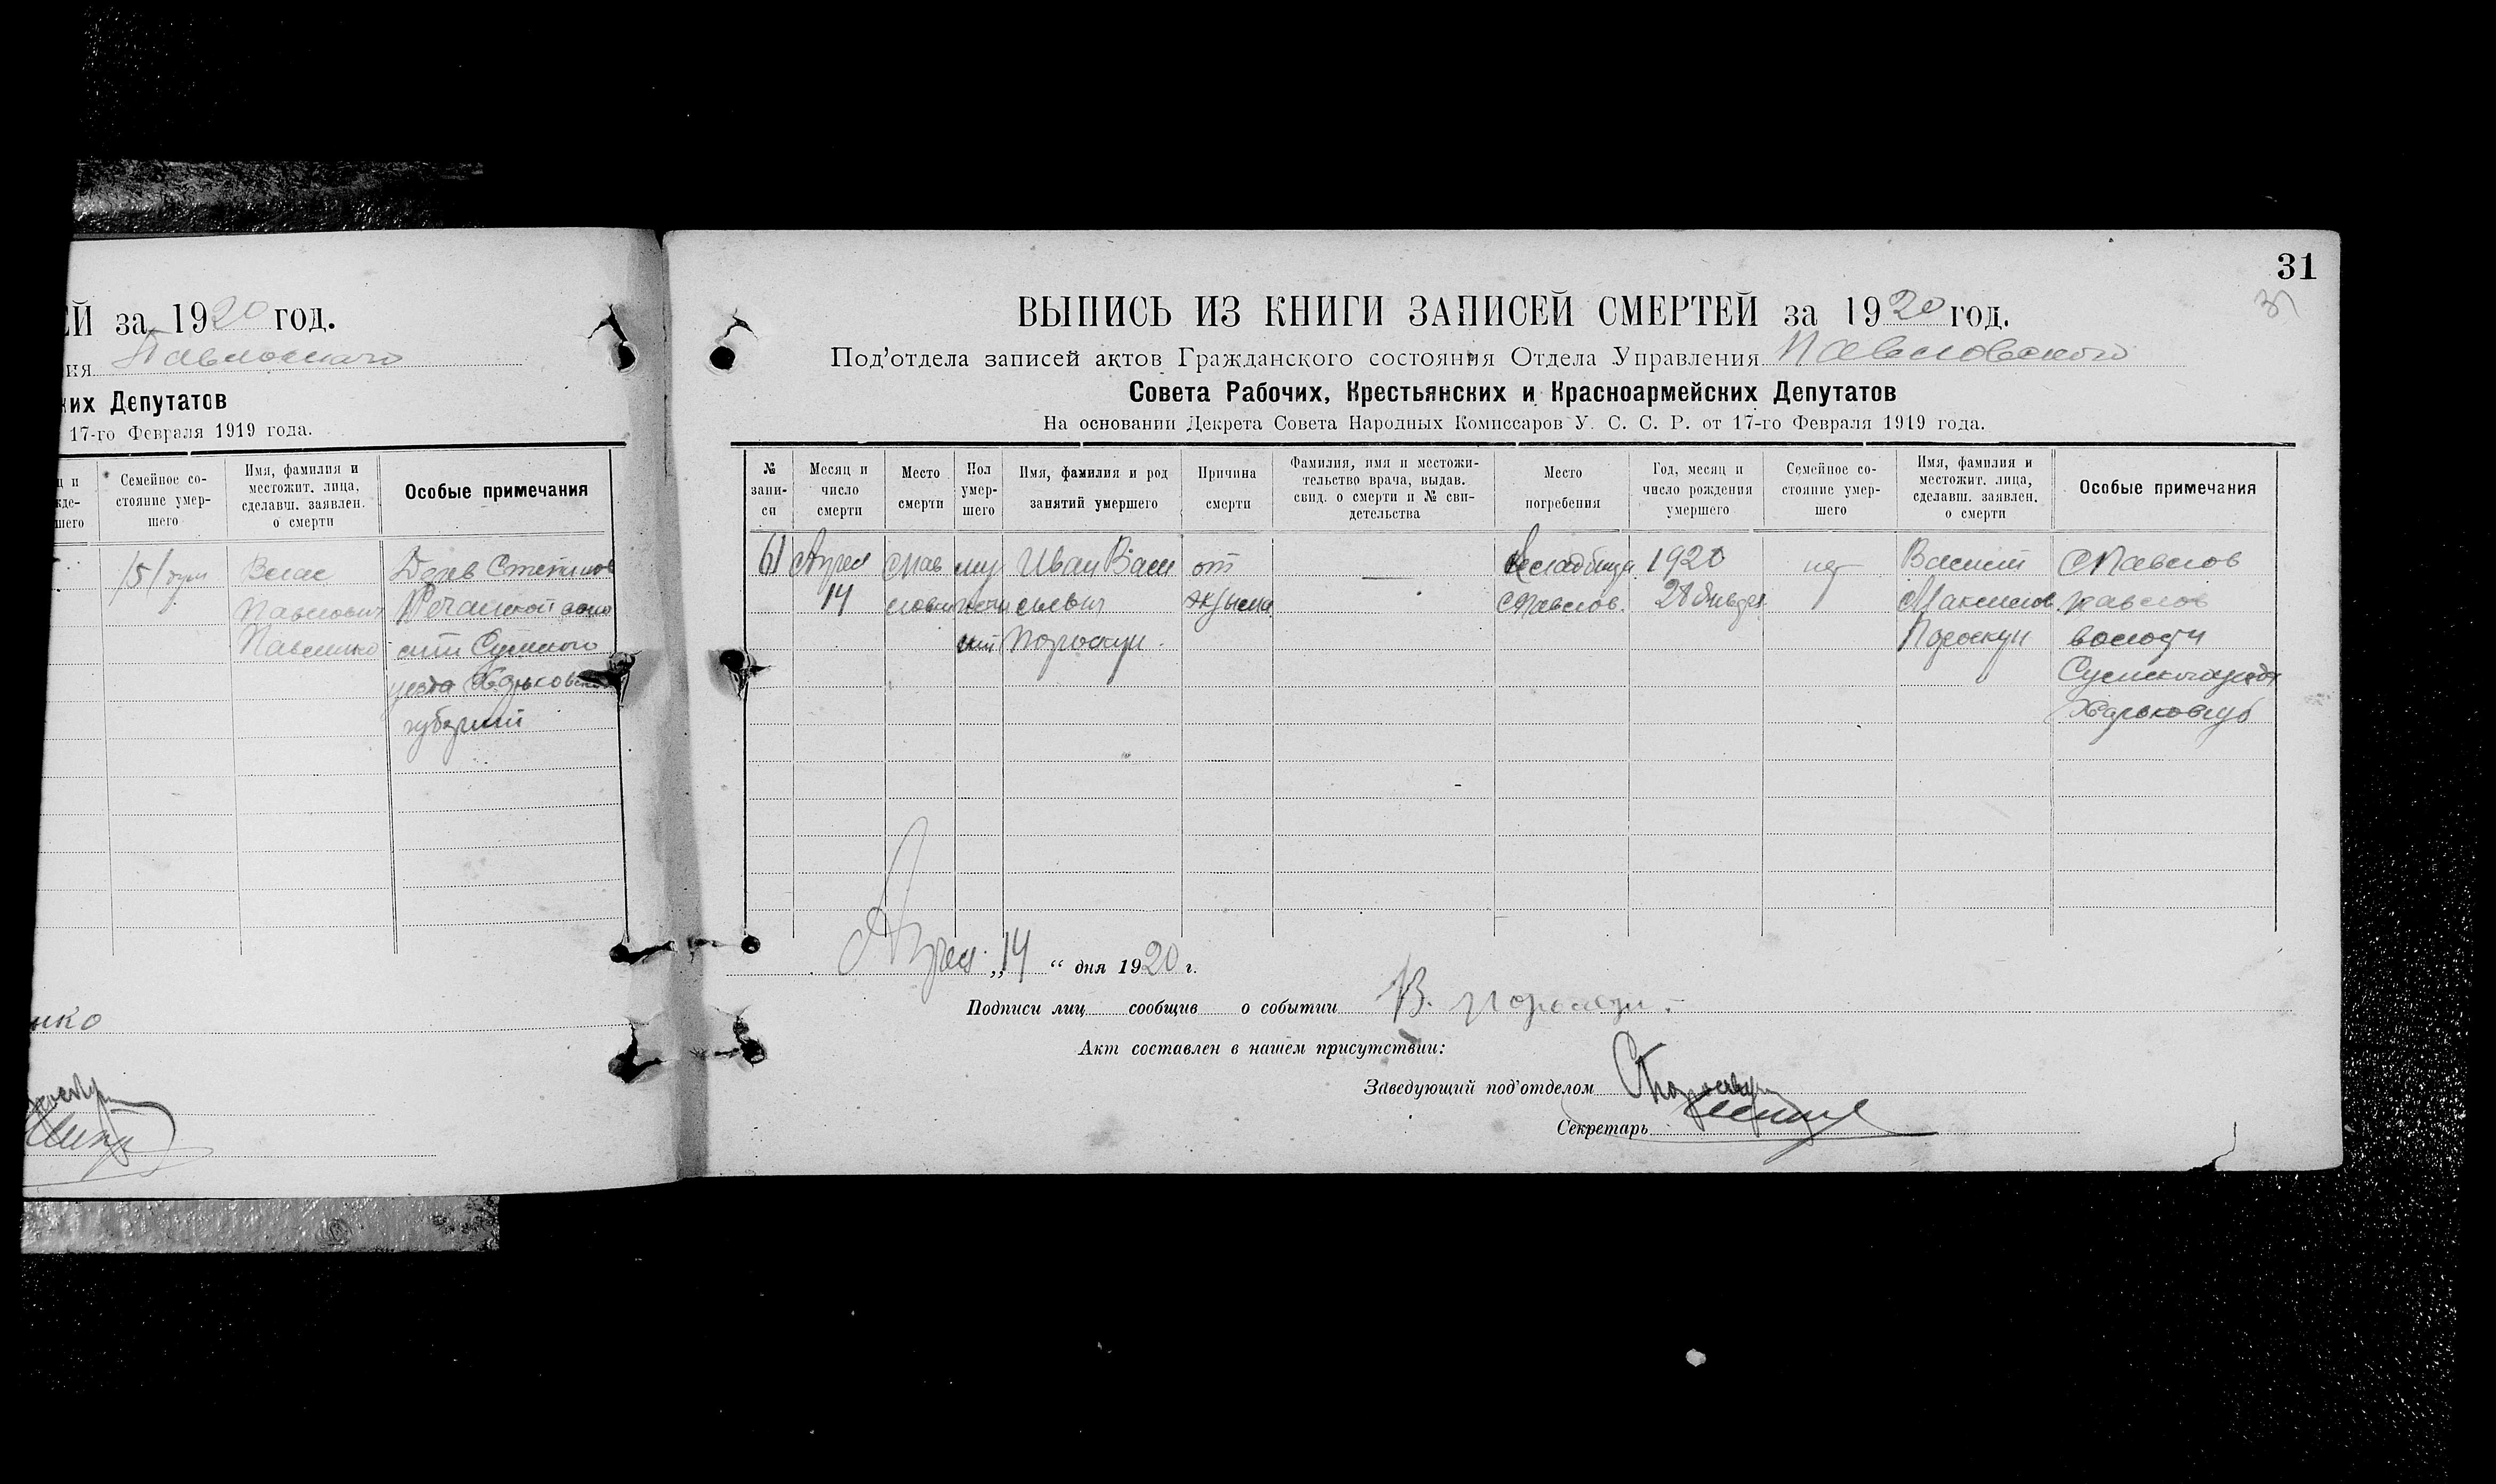 ЕЙ за 1920 год.
ния Павловского
ких Депутатов
17-го Февраля 1919 года.
ц и
жде-
шего
Семейное со-
стояние умер-
шего
Имя, фамилия и
местожит. лица,
сделавш. заявлен.
о смерти
Особые примечания
Влас
Павлович
Павленко
Дерв Степанов
Речанской
Сумского
уезда Харьковско
губернии
нко
31
31
ВЫПИСЬ ИЗ КНИГИ ЗАПИСЕЙ СМЕРТЕЙ за 1920 год.
Под'отдела записей актов Гражданского состояния Отдела Управления Павловского
Совета Рабочих, Крестьянских и Красноармейских Депутатов
На основании Декрета Совета Народных Комиссаров У. С. С. Р. от 17-го Февраля 1919 года.
№
запи-
си
Месяц и
число
смерти
Место
смерти
Пол
умер-
шего
Имя, фамилия и род
занятий умершего
Причина
смерти
Фамилия, имя и местожи-
тельство врача, выдав.
свид. о смерти и № сви-
детельства
Место
погребения
Год, месяц и
число рождения
умершего
Семейное со-
стояние умер-
шего
Имя, фамилия и
местожит. лица,
сделавш. заявлен.
о смерти
Особые примечания
61
Апрел
14
СПав
ловки
му
ский
Иван Васи
сильвич
Пороскун
от
Кладбища
СПавлов.
1920
28 Января
нет
Василий
Максимов
Пороскун
СПавлов
павлов
волости
Сумского уезда
Харьков губ
Апрел „14“ дня 1920 г.
Подписи лиц сообщив о событии В. Пороскун.
Акт составлен в нашем присутствии:
Заведующий под'отделом СПороскун
Секретарь